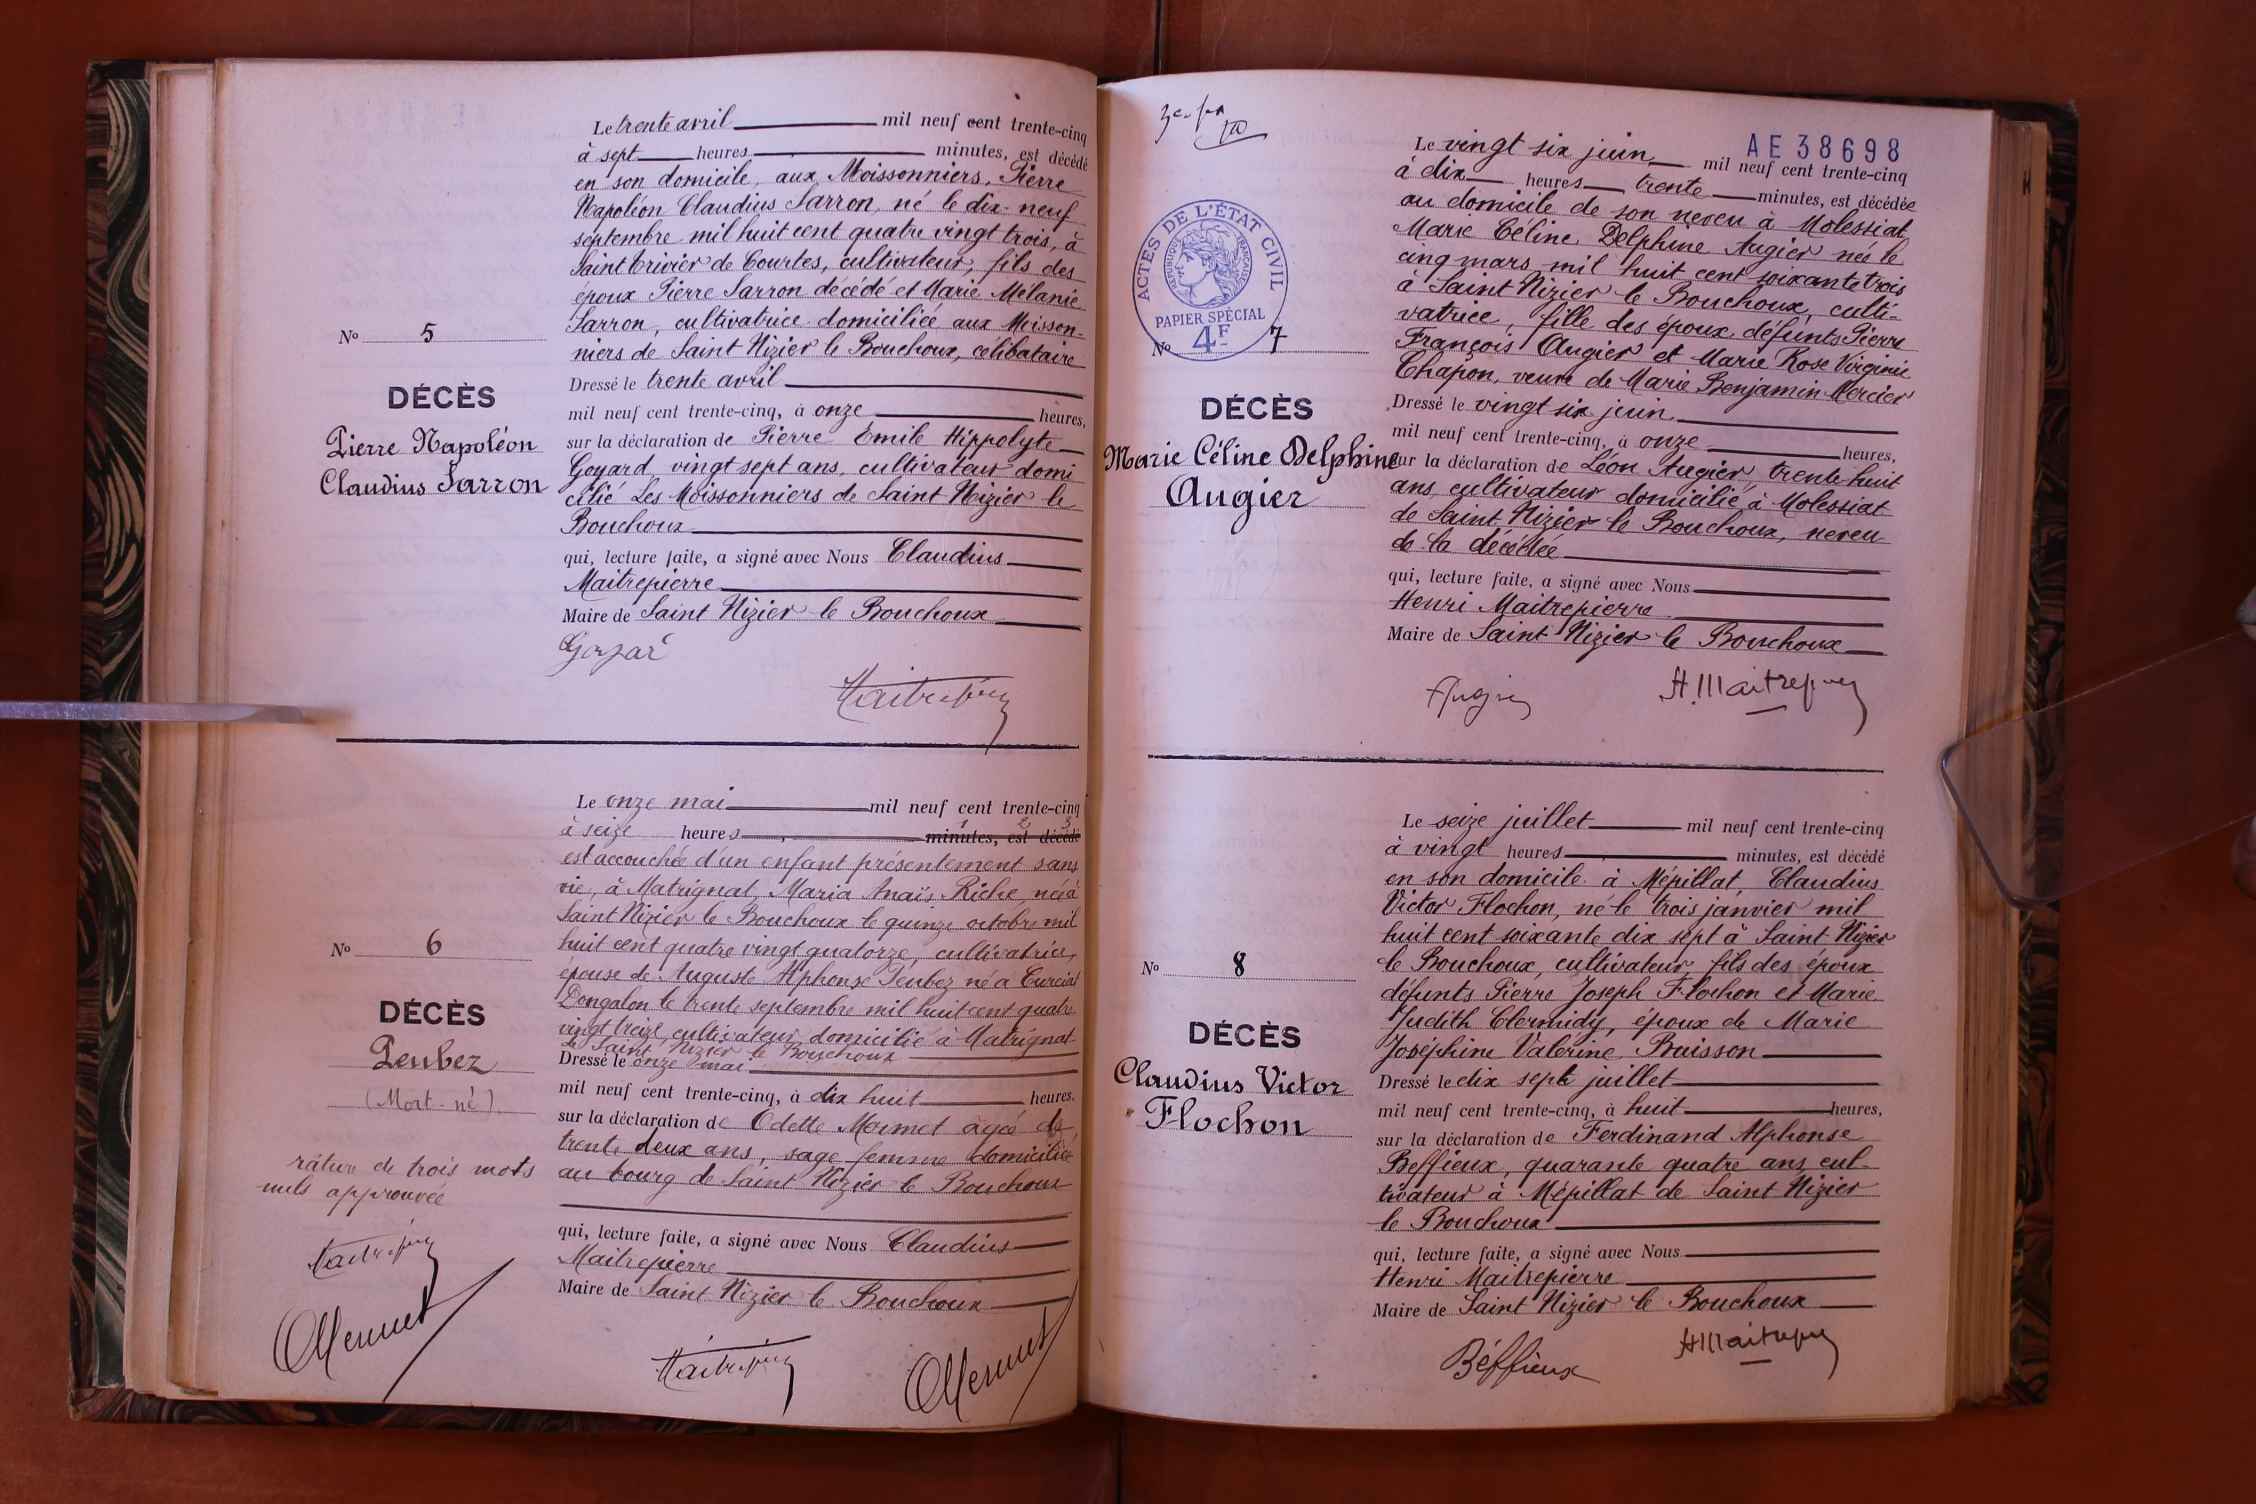 Le trente avril mil neuf cent trente-cinq
à sept heures minutes, est décédé
en son domicile, aux Moissonniers, Pierre
Napoléon Claudius Sarron, né le dix-neuf
septembre mil huit cent quatre vingt trois, à
Saint Trivier de Courtes, cultivateur, fils des
époux Pierre Sarron décédé et Marie Mélanie
Sarron, cultivatrice domiciliée aux Moisson-
niers de Saint Nizier le Bouchoux, célibataire
Dressé le trente avril
mil neuf cent trente-cinq, à onze heures,
sur la déclaration de Pierre Emile Hippolyte
Goyard, vingt sept ans, cultivateur domi
cilié Les Moissonniers de Saint Nizier le
Bouchoux
qui, lecture faite, a signé avec Nous Claudius
Maitrepierre
Maire de Saint Nizier le Bouchoux
No 5
DÉCÈS
Pierre Napoléon
Claudius Sarron
Goyard
Maitrepierre
Le onze mai mil neuf cent trente-cinq
à seize heures minutes, est décédé
1 2 3
est accouchée d'un enfant présentement sans
vie, à Matrignat, Maria Anaïs Riche, née à
Saint Nizier le Bouchoux le quinze octobre mil
huit cent quatre vingt quatorze, cultivatrice,
épouse de Auguste Alphonse Peubez né à Curciat
Dongalon le trente septembre mil huit cent quatre
vingt treize, cultivateur domicilié à Matrignat
de Saint Nizier le Bouchoux
Dressé le onze mai
mil neuf cent trente-cinq, à dix huit heures.
sur la déclaration de Odette Mermet âgée de
trente deux ans, sage femme domiciliée
au bourg de Saint Nizier le Bouchoux
qui, lecture faite, a signé avec Nous Claudius
Maitrepierre
Maire de Saint Nizier le Bouchoux
No 6
DÉCÈS
Peubez
(Mort-né)
râture de trois mots
nuls approuvée
Maitrepierre
OMermet
Maitrepierre
OMermet
AE 38698
ACTES DE L'ÉTAT CIVIL
RÉPUBLIQUE FRANÇAISE
PAPIER SPÉCIAL
4F
Le vingt six juin mil neuf cent trente-cinq
à dix heures trente minutes, est décédée
au domicile de son neveu à Molessiat
Marie Céline Delphine Augier née le
cinq mars mil huit cent soixante trois
à Saint Nizier le Bouchoux, culti-
vatrice, fille des époux défunts Pierre
François Augier et Marie Rose Virginie
Chapon, veuve de Marie Benjamin Mercier
Dressé le vingt six juin
mil neuf cent trente-cinq, à onze heures,
sur la déclaration de Léon Augier, trente-huit
ans, cultivateur domicilié à Molessiat
de Saint Nizier le Bouchoux, neveu
de la décédée
qui, lecture faite, a signé avec Nous
Henri Maitrepierre
Maire de Saint Nizier le Bouchoux
No 7
DÉCÈS
Marie Céline Delphine
Augier
Augier
H. Maitrepierre
Le seize juillet mil neuf cent trente-cinq
à vingt heures minutes, est décédé
en son domicile à Mépillat, Claudius
Victor Flochon, né le trois janvier mil
huit cent soixante dix sept à Saint Nizier
le Bouchoux, cultivateur, fils des époux
défunts Pierre Joseph Flochon et Marie
Judith Clermidy, époux de Marie
Joséphine Valérine Buisson
Dressé le dix sept juillet
mil neuf cent trente-cinq, à huit heures,
sur la déclaration de Ferdinand Alphonse
Beffieux, quarante quatre ans, cul-
tivateur à Mépillat de Saint Nizier
le Bouchoux
qui, lecture faite, a signé avec Nous
Henri Maitrepierre
Maire de Saint Nizier le Bouchoux
No 8
DÉCÈS
Claudius Victor
Flochon
Béffieux
H Maitrepierre